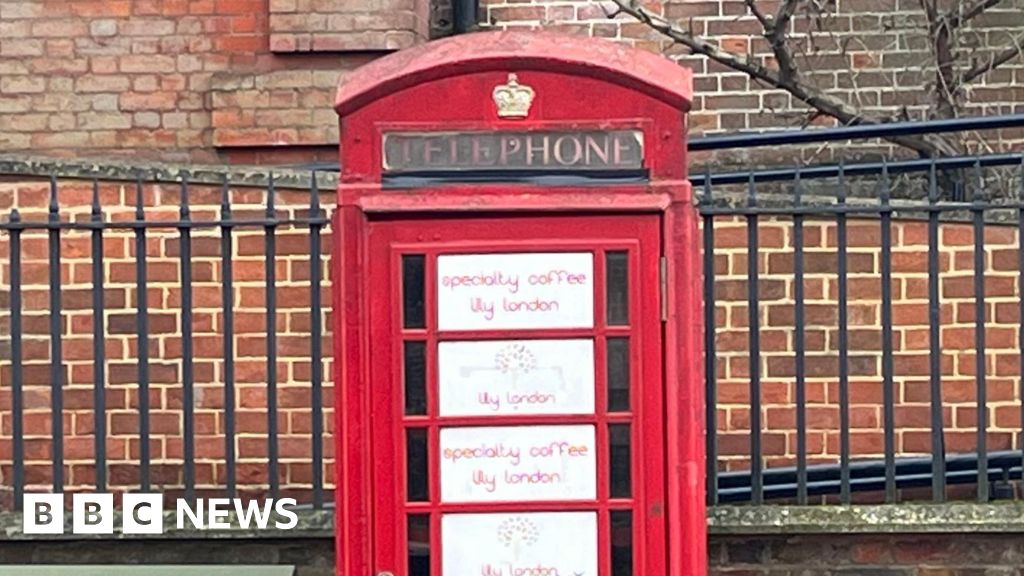 TELEPHONE
specialty coffee
lily london
lily london
specialty coffee
lily london
lily london
BBC NEWS